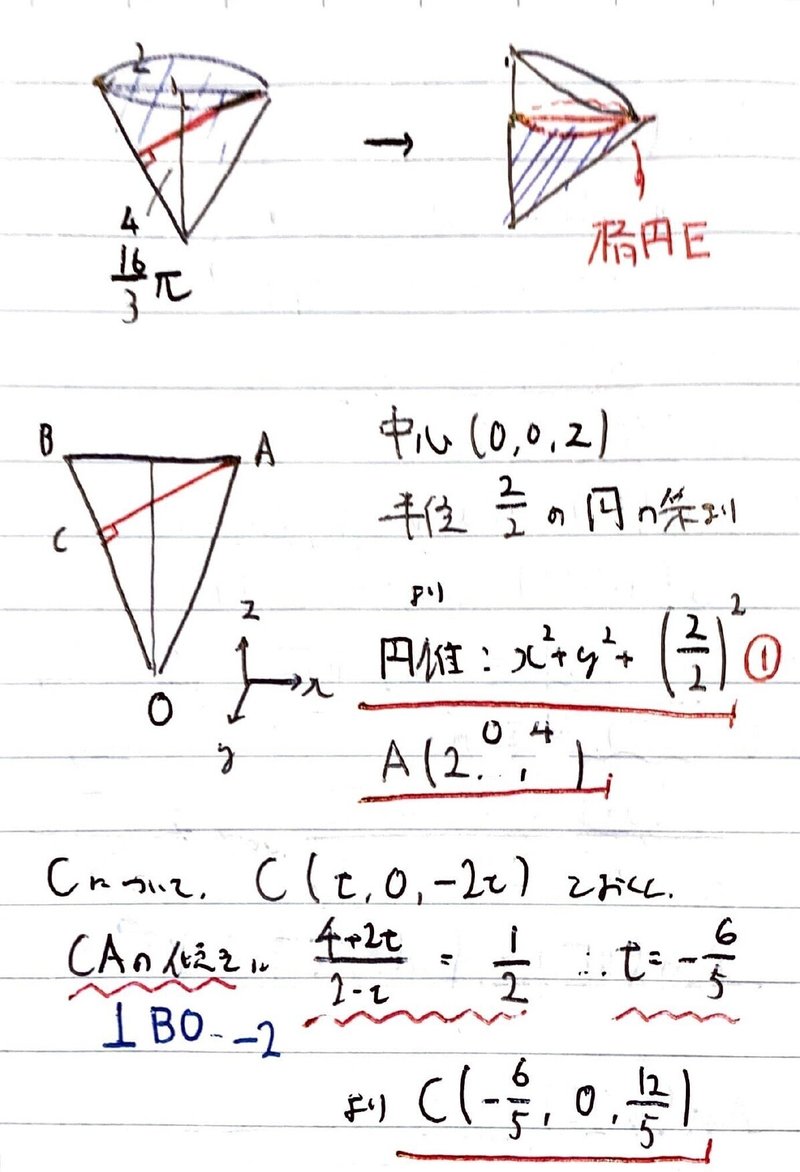 2
4
16/3 π
→
楕円E
B A
C
O
z
x
y
中心(0,0,z)
半径 z/2 の円の集まり
より
円錐: x²+y²+(z/2)² ①
A(2, 0, 4)
Cについて, C(t, 0, -2t) とおくと,
CAの傾きは (4+2t)/(2-t) = 1/2 ∴ t = -6/5
⊥BO… -2
より C(-6/5, 0, 12/5)